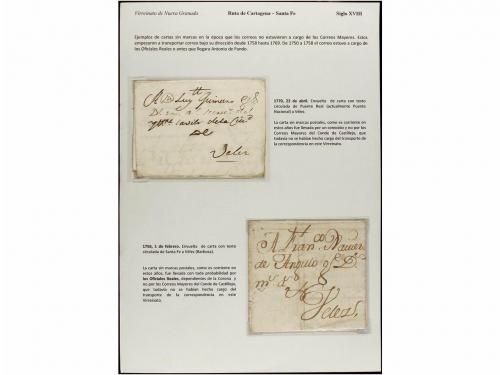 Virreinato de Nueva Granada Ruta de Cartagena – Santa Fe Siglo XVIII
Ejemplos de cartas sin marcas en la época que los correos no estuvieron a cargo de los Correos Mayores. Estos
empezaron a transportar correo bajo su dirección desde 1758 hasta 1769. De 1750 a 1758 el correo estuvo a cargo de
los Oficiales Reales o antes que llegara Antonio de Pando.
1750, 22 de abril. Envuelta de carta con texto
circulada de Puente Real (actualmente Puente
Nacional) a Vélez.
La carta sin marcas postales, como es corriente en
estos años fue llevada por un conocido y no por los
Correos Mayores del Conde de Castillejo, que
todavía no se habían hecho cargo del transporte de
la correspondencia en este Virreinato.
A Dn Luis
de
Velez
1756, 1 de febrero. Envuelta de carta con texto
circulada de Santa Fe a Vélez (Barbosa).
La carta sin marcas postales, como es corriente en
estos años, fue llevada con toda probabilidad por
los Oficiales Reales, dependientes de la Corona y
no por los Correos Mayores del Conde de Castillejo,
que todavía no se habían hecho cargo del
transporte de la correspondencia en este
Virreinato.
A
de Angulo
Velez